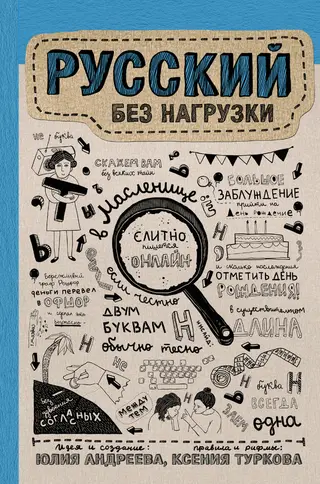 РУССКИЙ
БЕЗ НАГРУЗКИ
не
буква
СКАЖЕМ ВАМ
без всяких тайн
в Масленице
СЛИТНО
пишется
ОНЛАЙН
БОЛЬШОЕ
ЗАБЛУЖДЕНИЕ
прийти на
ДЕНЬ РОЖДЕНИЕ
и сколько
ОТМЕТИТЬ ДЕНЬ
РОЖДЕНИЯ!
в существительном
ДЛИНА
деньги перевел
в ОФШОР
и сделал это
если честно
ДВУМ
БУКВАМ
обычно тесно
Н
не
Н
буква
Н
ВСЕГДА
одна
без
СОГЛАСНЫХ
МЕЖДУ
ТЕМ
Идея и создание:
правила и рифмы:
ЮЛИЯ АНДРЕЕВА, КСЕНИЯ ТУРКОВА